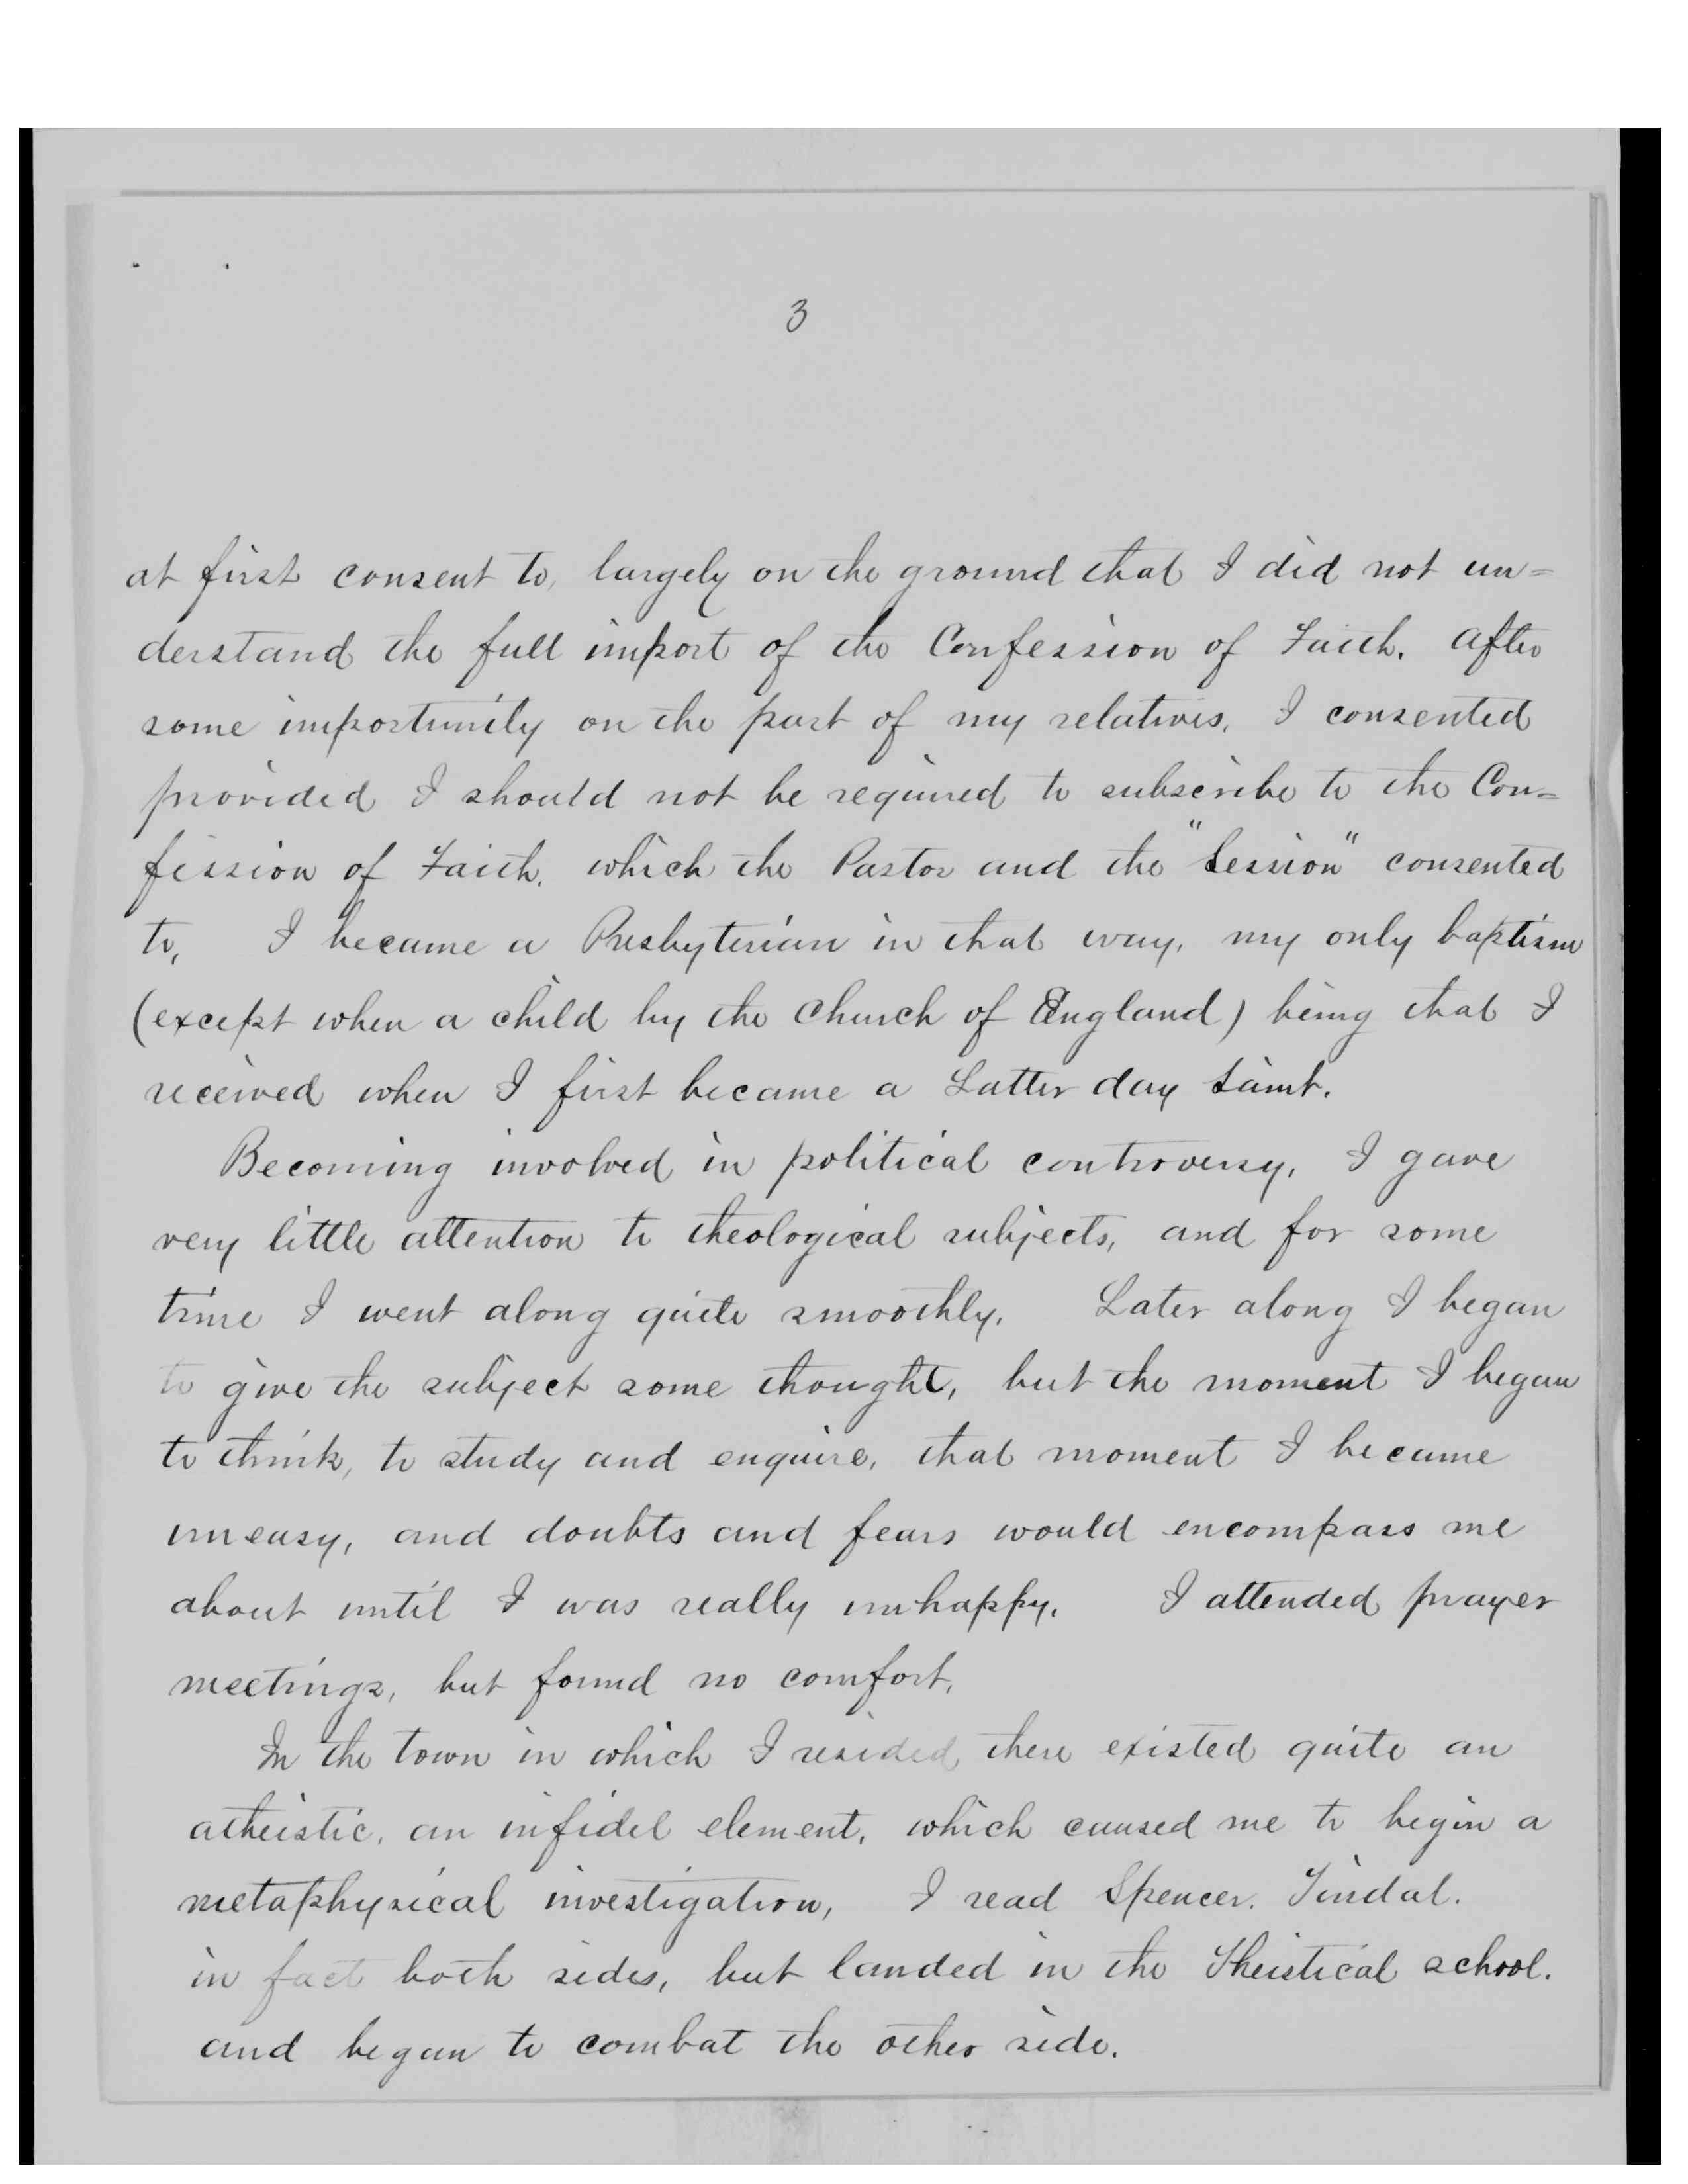 3
at first consent to, largely on the ground that I did not un=
derstand the full import of the Confession of Faith. After
some importunity on the part of my relatives, I consented
provided I should not be required to subscribe to the Con=
fession of Faith, which the Pastor and the "Session" consented
to, I became a Presbyterian in that way, my only baptism
(except when a child by the Church of England) being that I
received when I first became a Latter day Saint.
Becoming involved in political controversy, I gave
very little attention to theological subjects, and for some
time I went along quite smoothly. Later along I began
to give the subject some thought, but the moment I began
to think, to study and enquire, that moment I became
uneasy, and doubts and fears would encompass me
about until I was really unhappy. I attended prayer
meetings, but found no comfort.
In the town in which I resided there existed quite an
atheistic, an infidel element, which caused me to begin a
metaphysical investigation, I read Spencer. Tindal.
in fact both sides, but landed in the Theistical school.
and began to combat the other side.